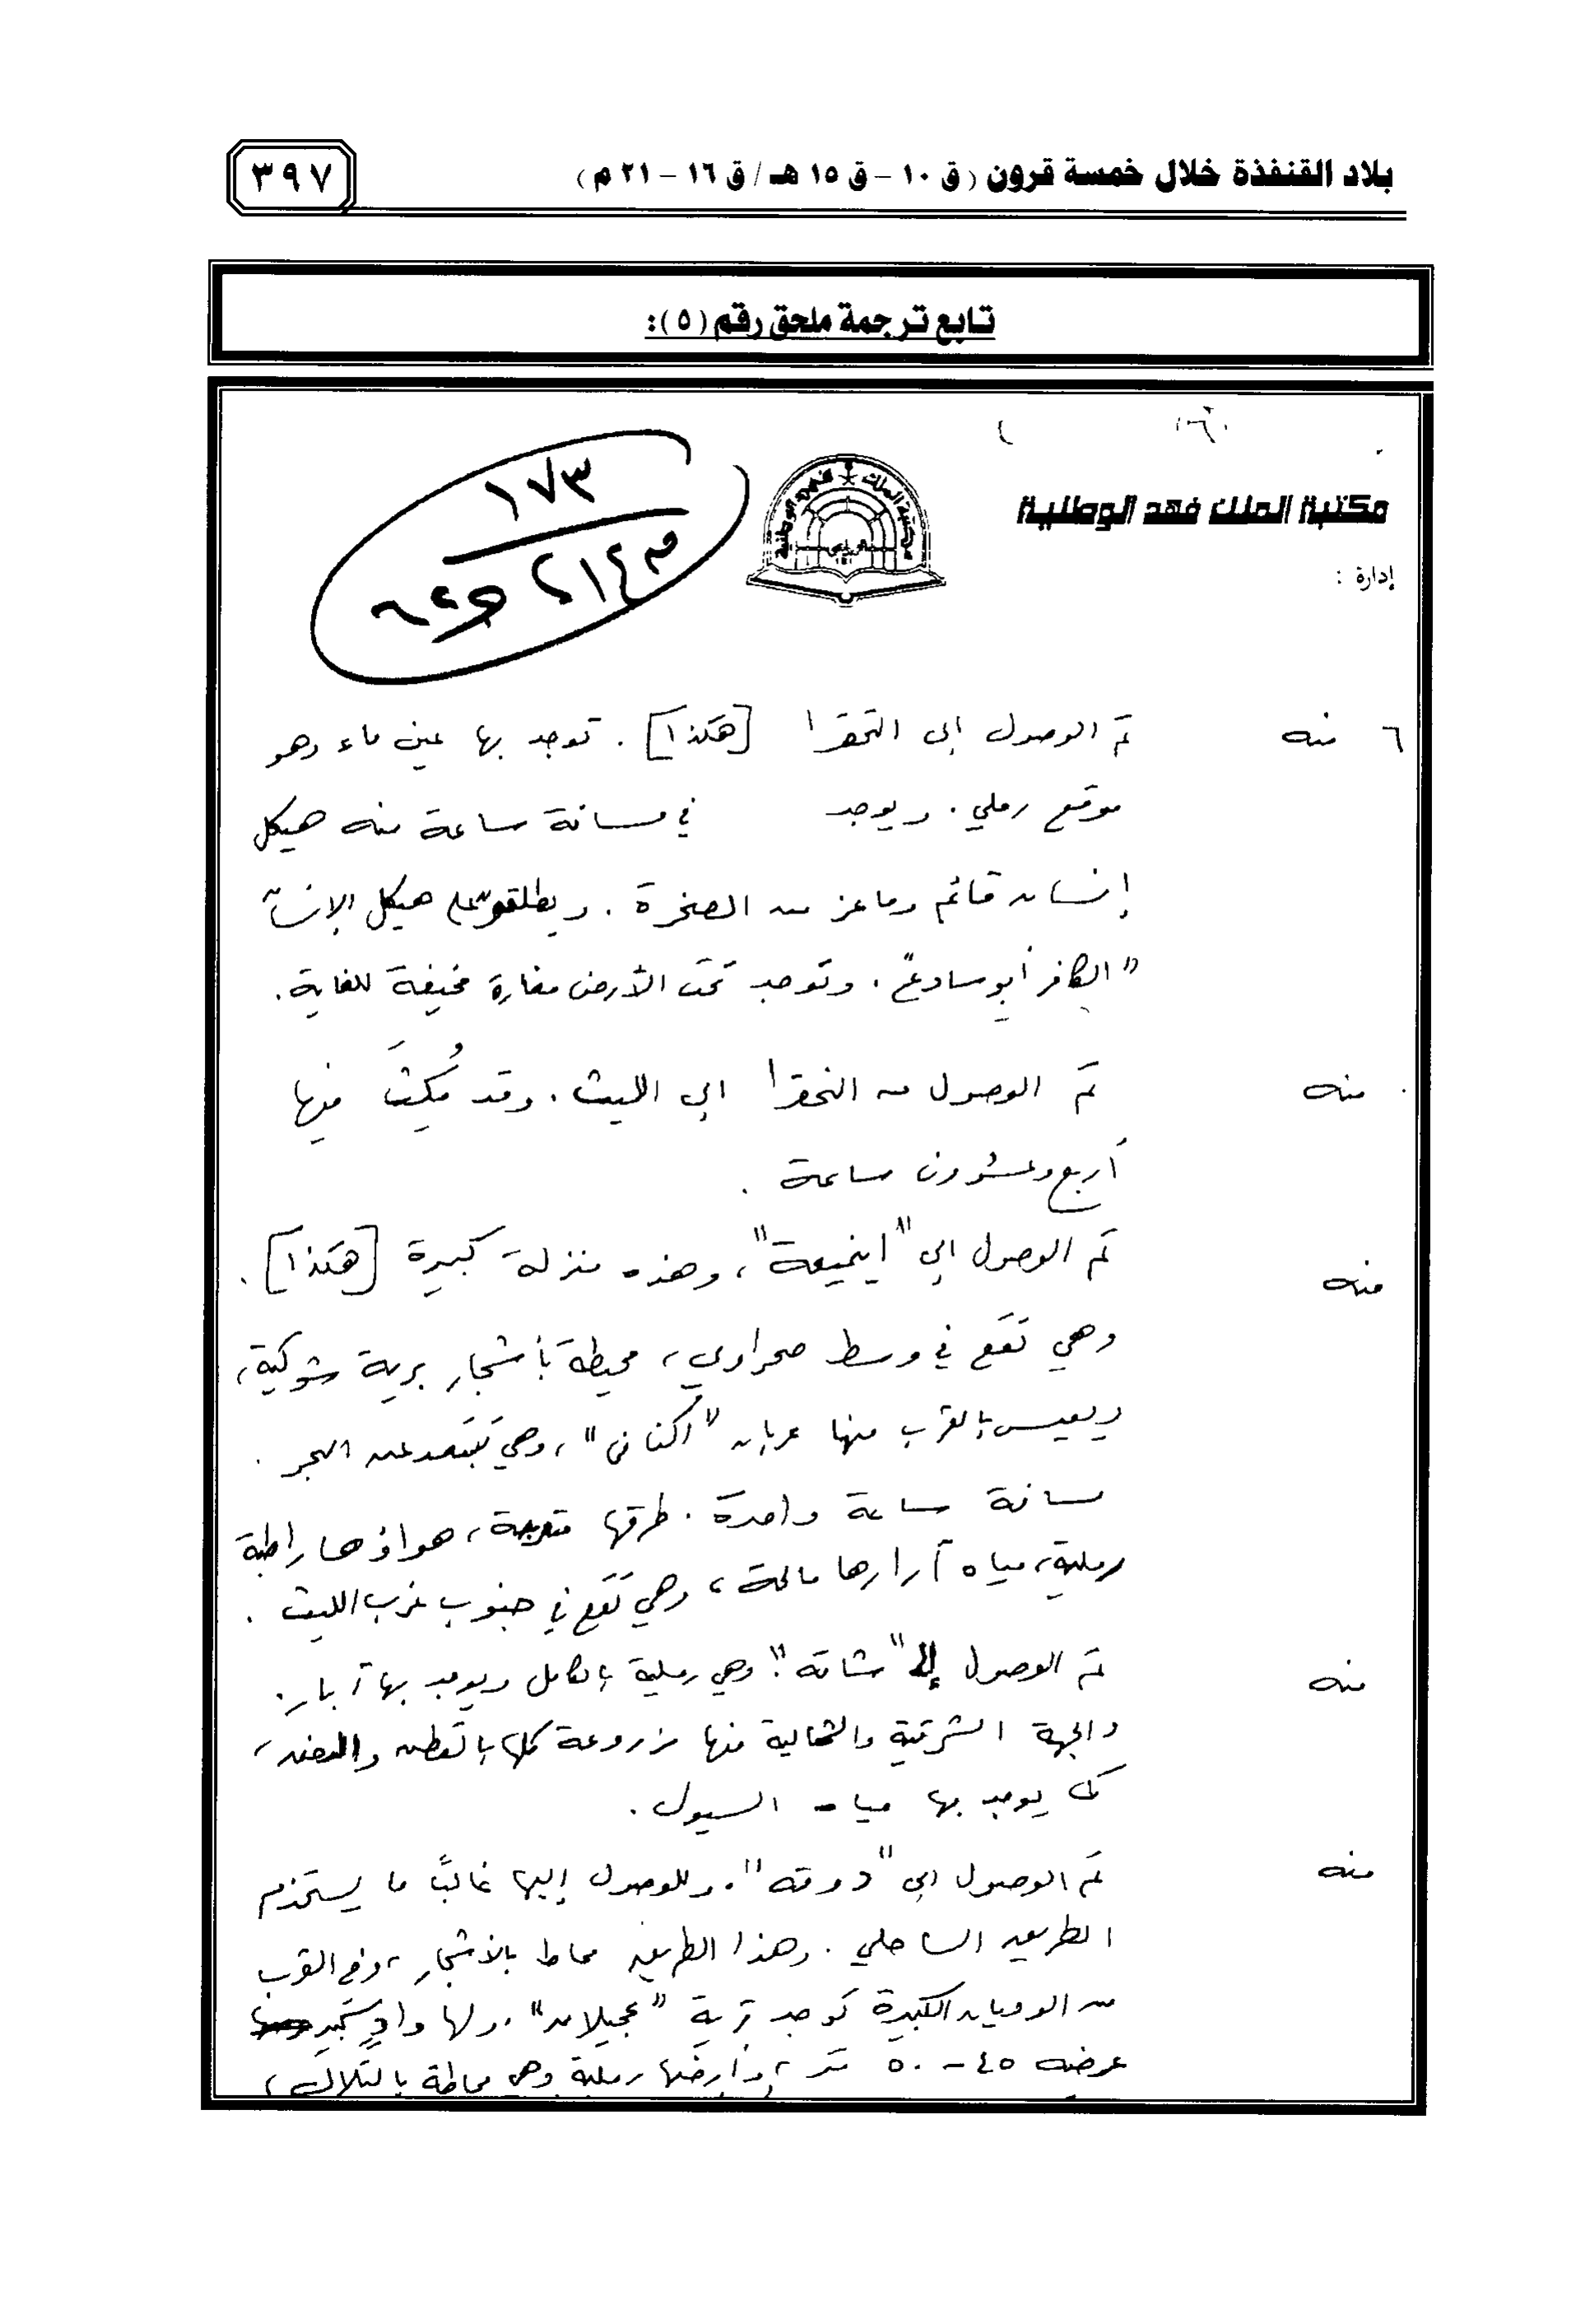 بلاد القنفذة خلال خمسة قرون (ق ١٠ - ق ١٥ هـ / ق ١٦ - ٢١ م)
٣٩٧
تابع ترجمة ملحق رقم (٥):
مكتبة الملك فهد الوطنية
إدارة :
١٧٣
٦ منه
تم الوصول إلى النحقرا [هكذا]. توجد بها عين ماء وهو
موقع رملي. ويوجد في مسافة ساعة منه هيكل
إنسان قائم وماعز من الصخرة. ويطلقون على هيكل الإنسان
"الكافر أبو سادع". وتوجد تحت الأرض مغارة مخيفة للغاية.
منه
تم الوصول من النحقرا إلى الليث. وقد مُكِثَ فيها
أربع وعشرون ساعة.
منه
تم الوصول إلى "اينميعة"، وهذه منزلة كبيرة [هكذا].
وهي تقع في وسط صحراوي، محيطة بأشجار برية شوكية،
ويعيش بالقرب منها عربان "اكنانى"، وهي تبتعد عن البحر
مسافة ساعة واحدة. طرقها متعرجة، هواؤها راطبة
رملية، مياه آرارها مالحة، وهي تقع في جنوب غرب الليث.
منه
تم الوصول إلى "شاقه". وهي رملية بالكامل ويوجد بها آبار.
والجهة الشرقية والشمالية منها مزروعة كلها بالقطن والدخن،
كما يوجد بها مياه السيول.
منه
تم الوصول إلى "دوقه". وللوصول إليها غالبًا ما يستخدم
الطريق الساحلي. وهذا الطريق محاط بالأشجار، وفي القرب
من الوديان الكبيرة توجد قرية "عجيلان". ولها وادٍ كبير
عرضه ٤٥ - ٥٠ متر، وأرضها رملية وهي محاطة بالتلال،